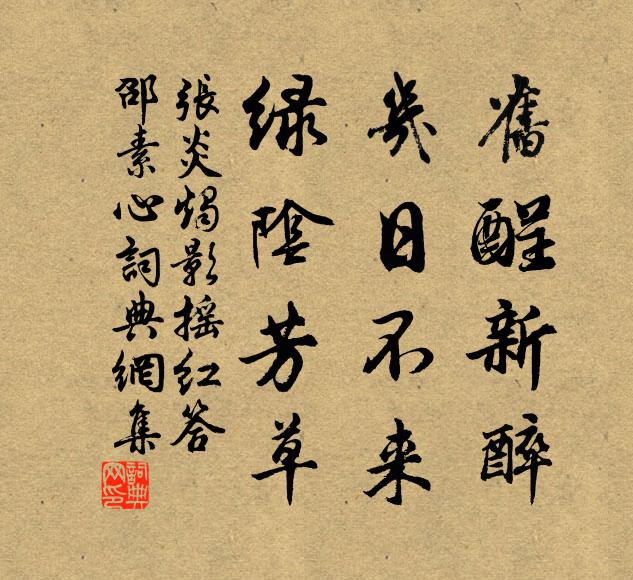 舊醒新醉
幾日不来
緑陰芳草
張炎燭影摇红答
邵素心詞典網集
詞典网印